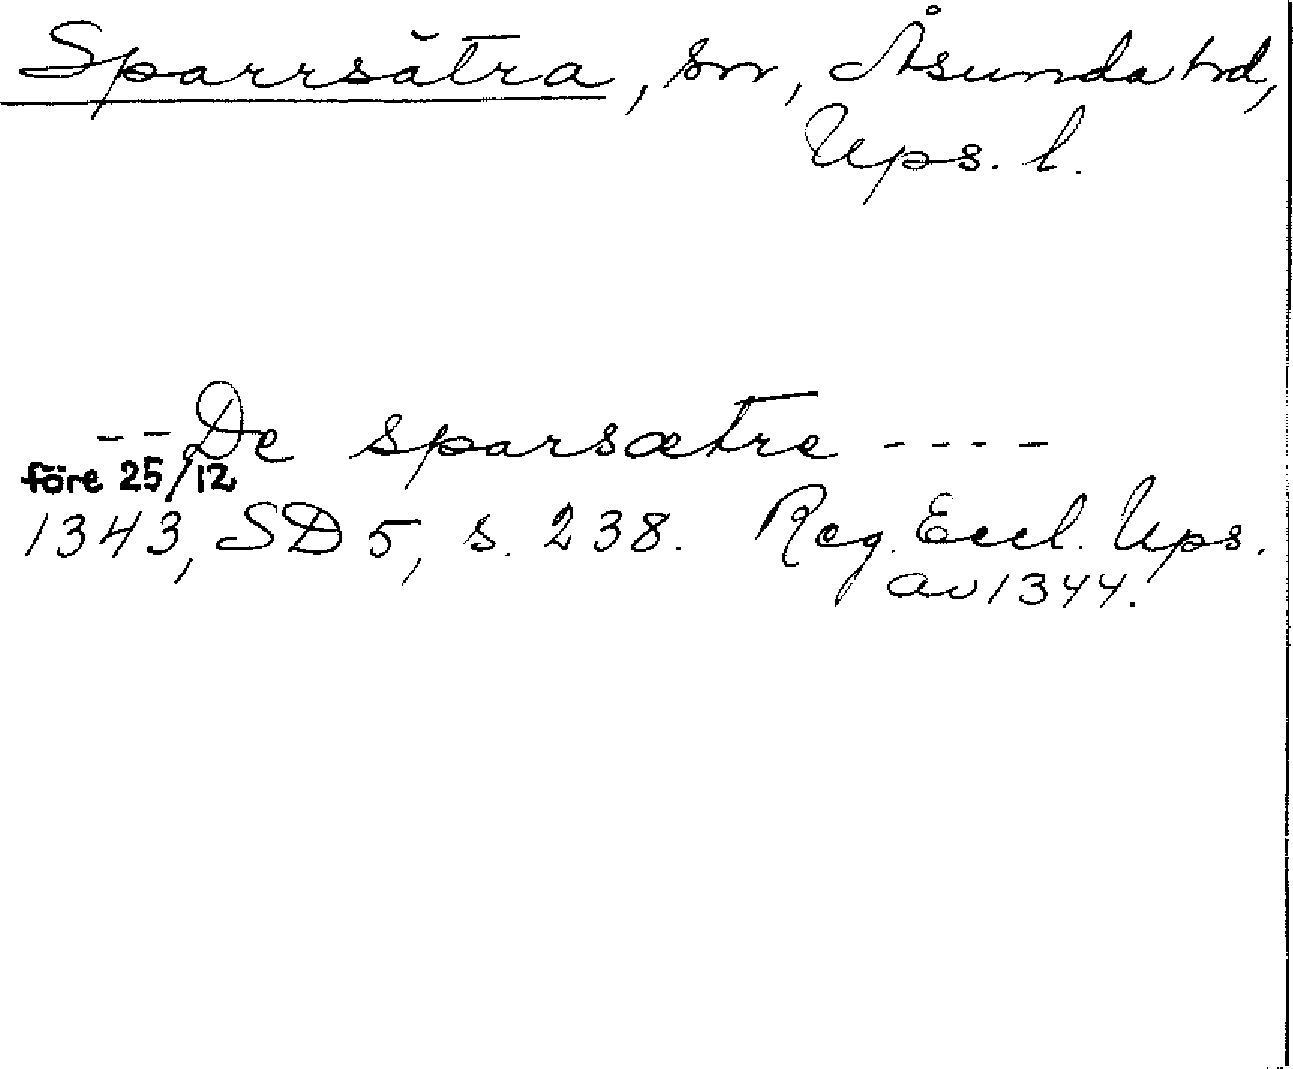 Sparrsätra, sn, Åsunda hd,
Ups. l.
-- De sparsætre ----
före 25/12
1343, SD 5, s. 238. Reg. Eccl. Ups.
av 1344.